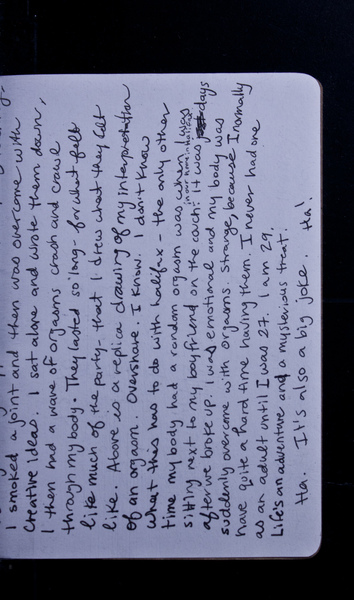 I smoked a joint and then was overcome with
creative ideas. I sat alone and wrote them down,
I then had a wave of orgasms crash and crawl
through my body. They lasted so long - for what felt
like much of the party - that I drew what they felt
like. Above is a replica drawing of my interpretation
of an orgasm. Overshare. I know. I don't know
what this has to do with halifax - the only other
time my body had a random orgasm was when I was
in our home in halifax
sitting next to my boyfriend on the couch. It was days
after we broke up. I was emotional and my body was
suddenly overcome with orgasms. Strange, because I normally
have quite a hard time having them. I never had one
as an adult until I was 27. I am 29.
Life's an adventure and a mysterious treat.
Ha. It's also a big joke. Ha!